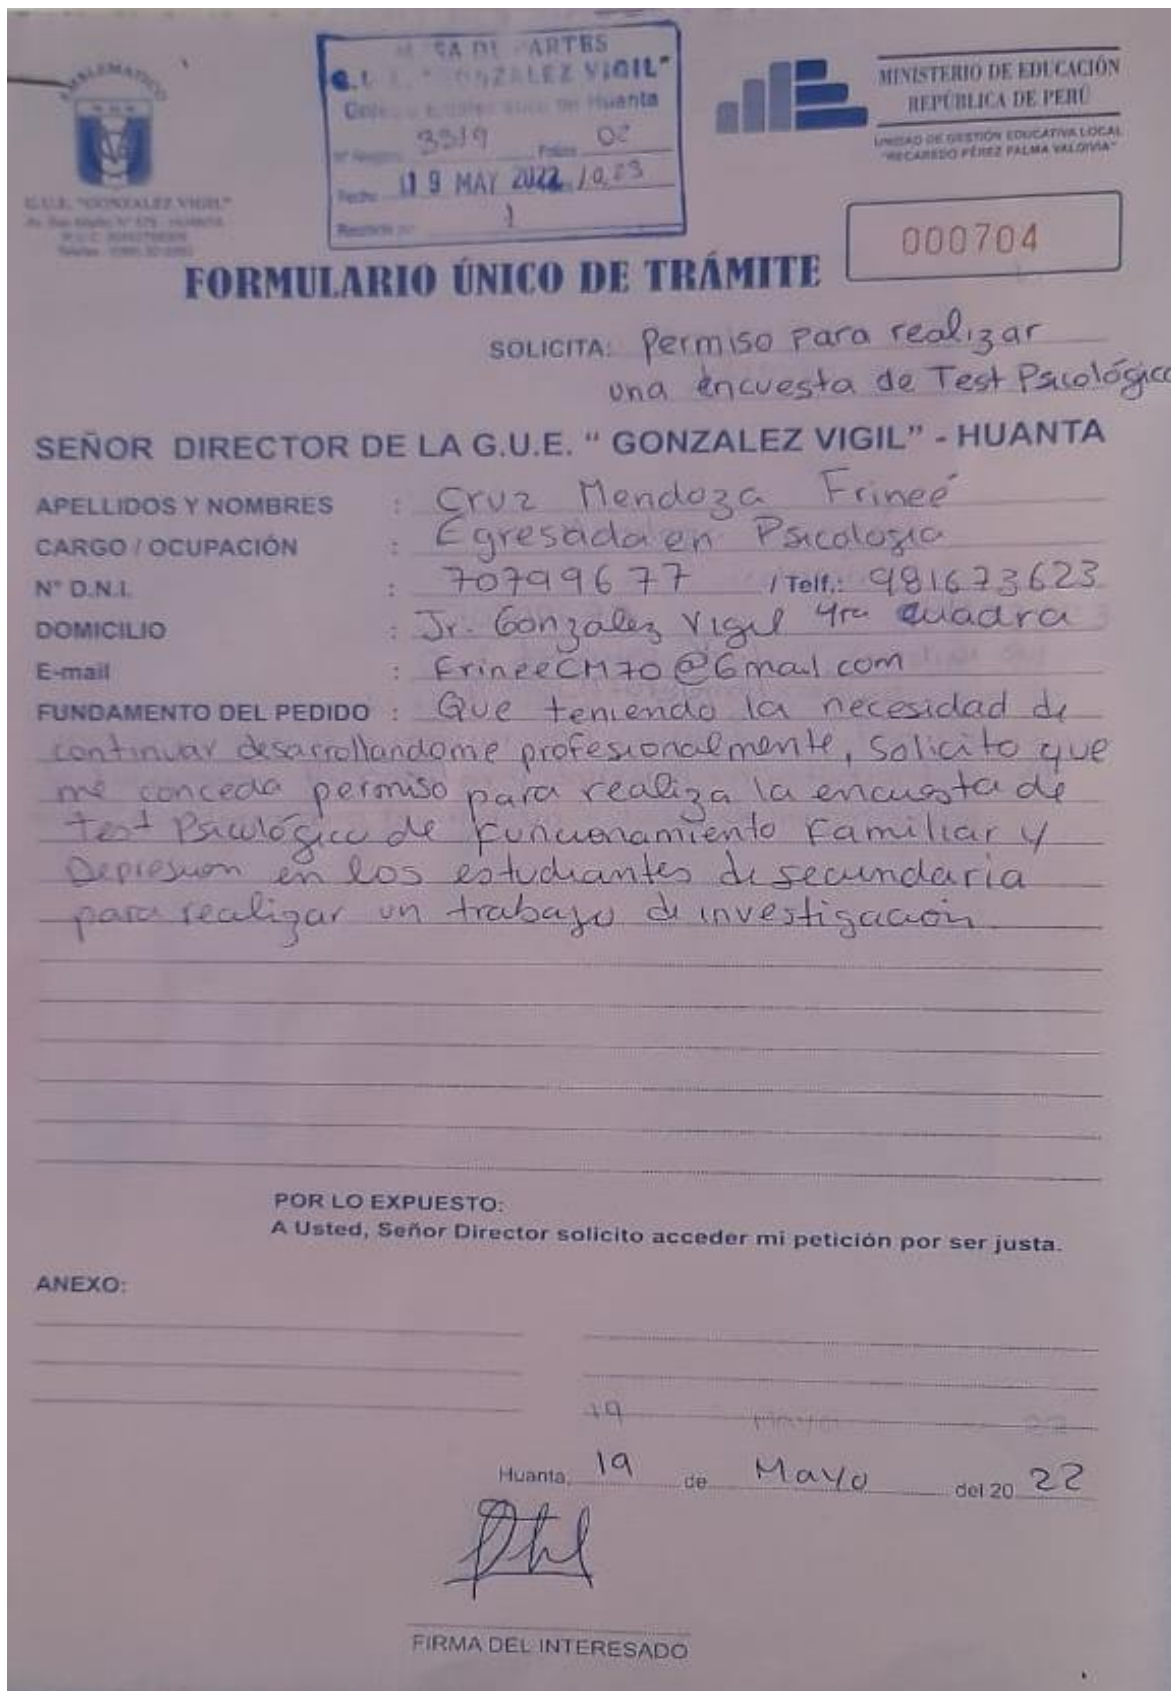 EMBLEMATICO
G.U.E. "GONZALEZ VIGIL"
MESA DE PARTES
"GONZALEZ VIGIL"
Huanta
Nº Registro 3519 Folios 02
Fecha 19 MAY 2022 10,23
Recibido por 1
MINISTERIO DE EDUCACIÓN
REPÚBLICA DE PERÚ
UNIDAD DE GESTIÓN EDUCATIVA LOCAL
"RECAREDO PÉREZ PALMA VALDIVIA"
000704
FORMULARIO ÚNICO DE TRÁMITE
SOLICITA: Permiso para realizar
una encuesta de Test Psicológico
SEÑOR DIRECTOR DE LA G.U.E. " GONZALEZ VIGIL" - HUANTA
APELLIDOS Y NOMBRES : Cruz Mendoza Frineé
CARGO / OCUPACIÓN : Egresada en Psicologia
N° D.N.I. : 70799677 / Telf.: 981673623
DOMICILIO : Jr. Gonzáles Vigil 4ra cuadra
E-mail : FrineeCM70@Gmail.com
FUNDAMENTO DEL PEDIDO : Que teniendo la necesidad de
continuar desarrollandome profesionalmente, solicito que
me conceda permiso para realiza la encuesta de
test Psicológico de Funcionamiento Familiar y
Depresion en los estudiantes de secundaria
para realizar un trabajo de investigación
POR LO EXPUESTO:
A Usted, Señor Director solicito acceder mi petición por ser justa.
ANEXO:
19 Mayo 22
Huanta, 19 de Mayo del 20 22
FIRMA DEL INTERESADO